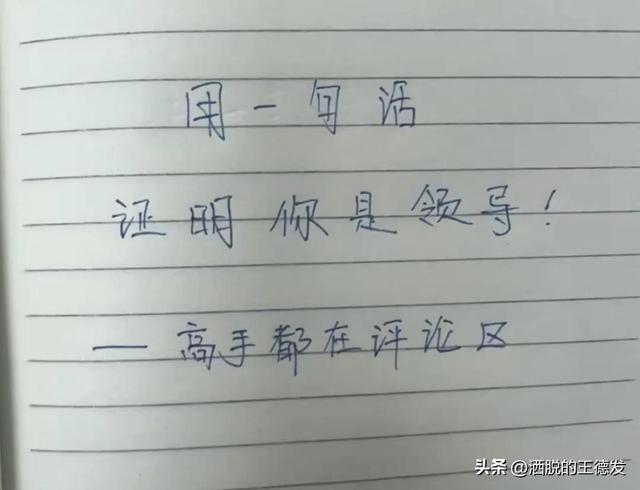 用一句话
证明你是领导!
—高手都在评论区
头条 @洒脱的王德发